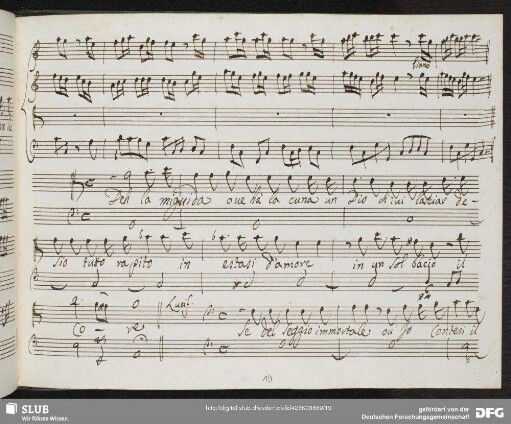 Piano
Deh la mi guida oue hà la cuna un Dio di cui lasciar de-
sio tutto rapito in estasi d'amore in un sol bacio il
Co-re Lucif.
Se del seggio immortale où Io Contesi il
19
SLUB
Wir führen Wissen.
http://digital.slub-dresden.de/id425603869/19
gefördert von der
Deutschen Forschungsgemeinschaft
DFG